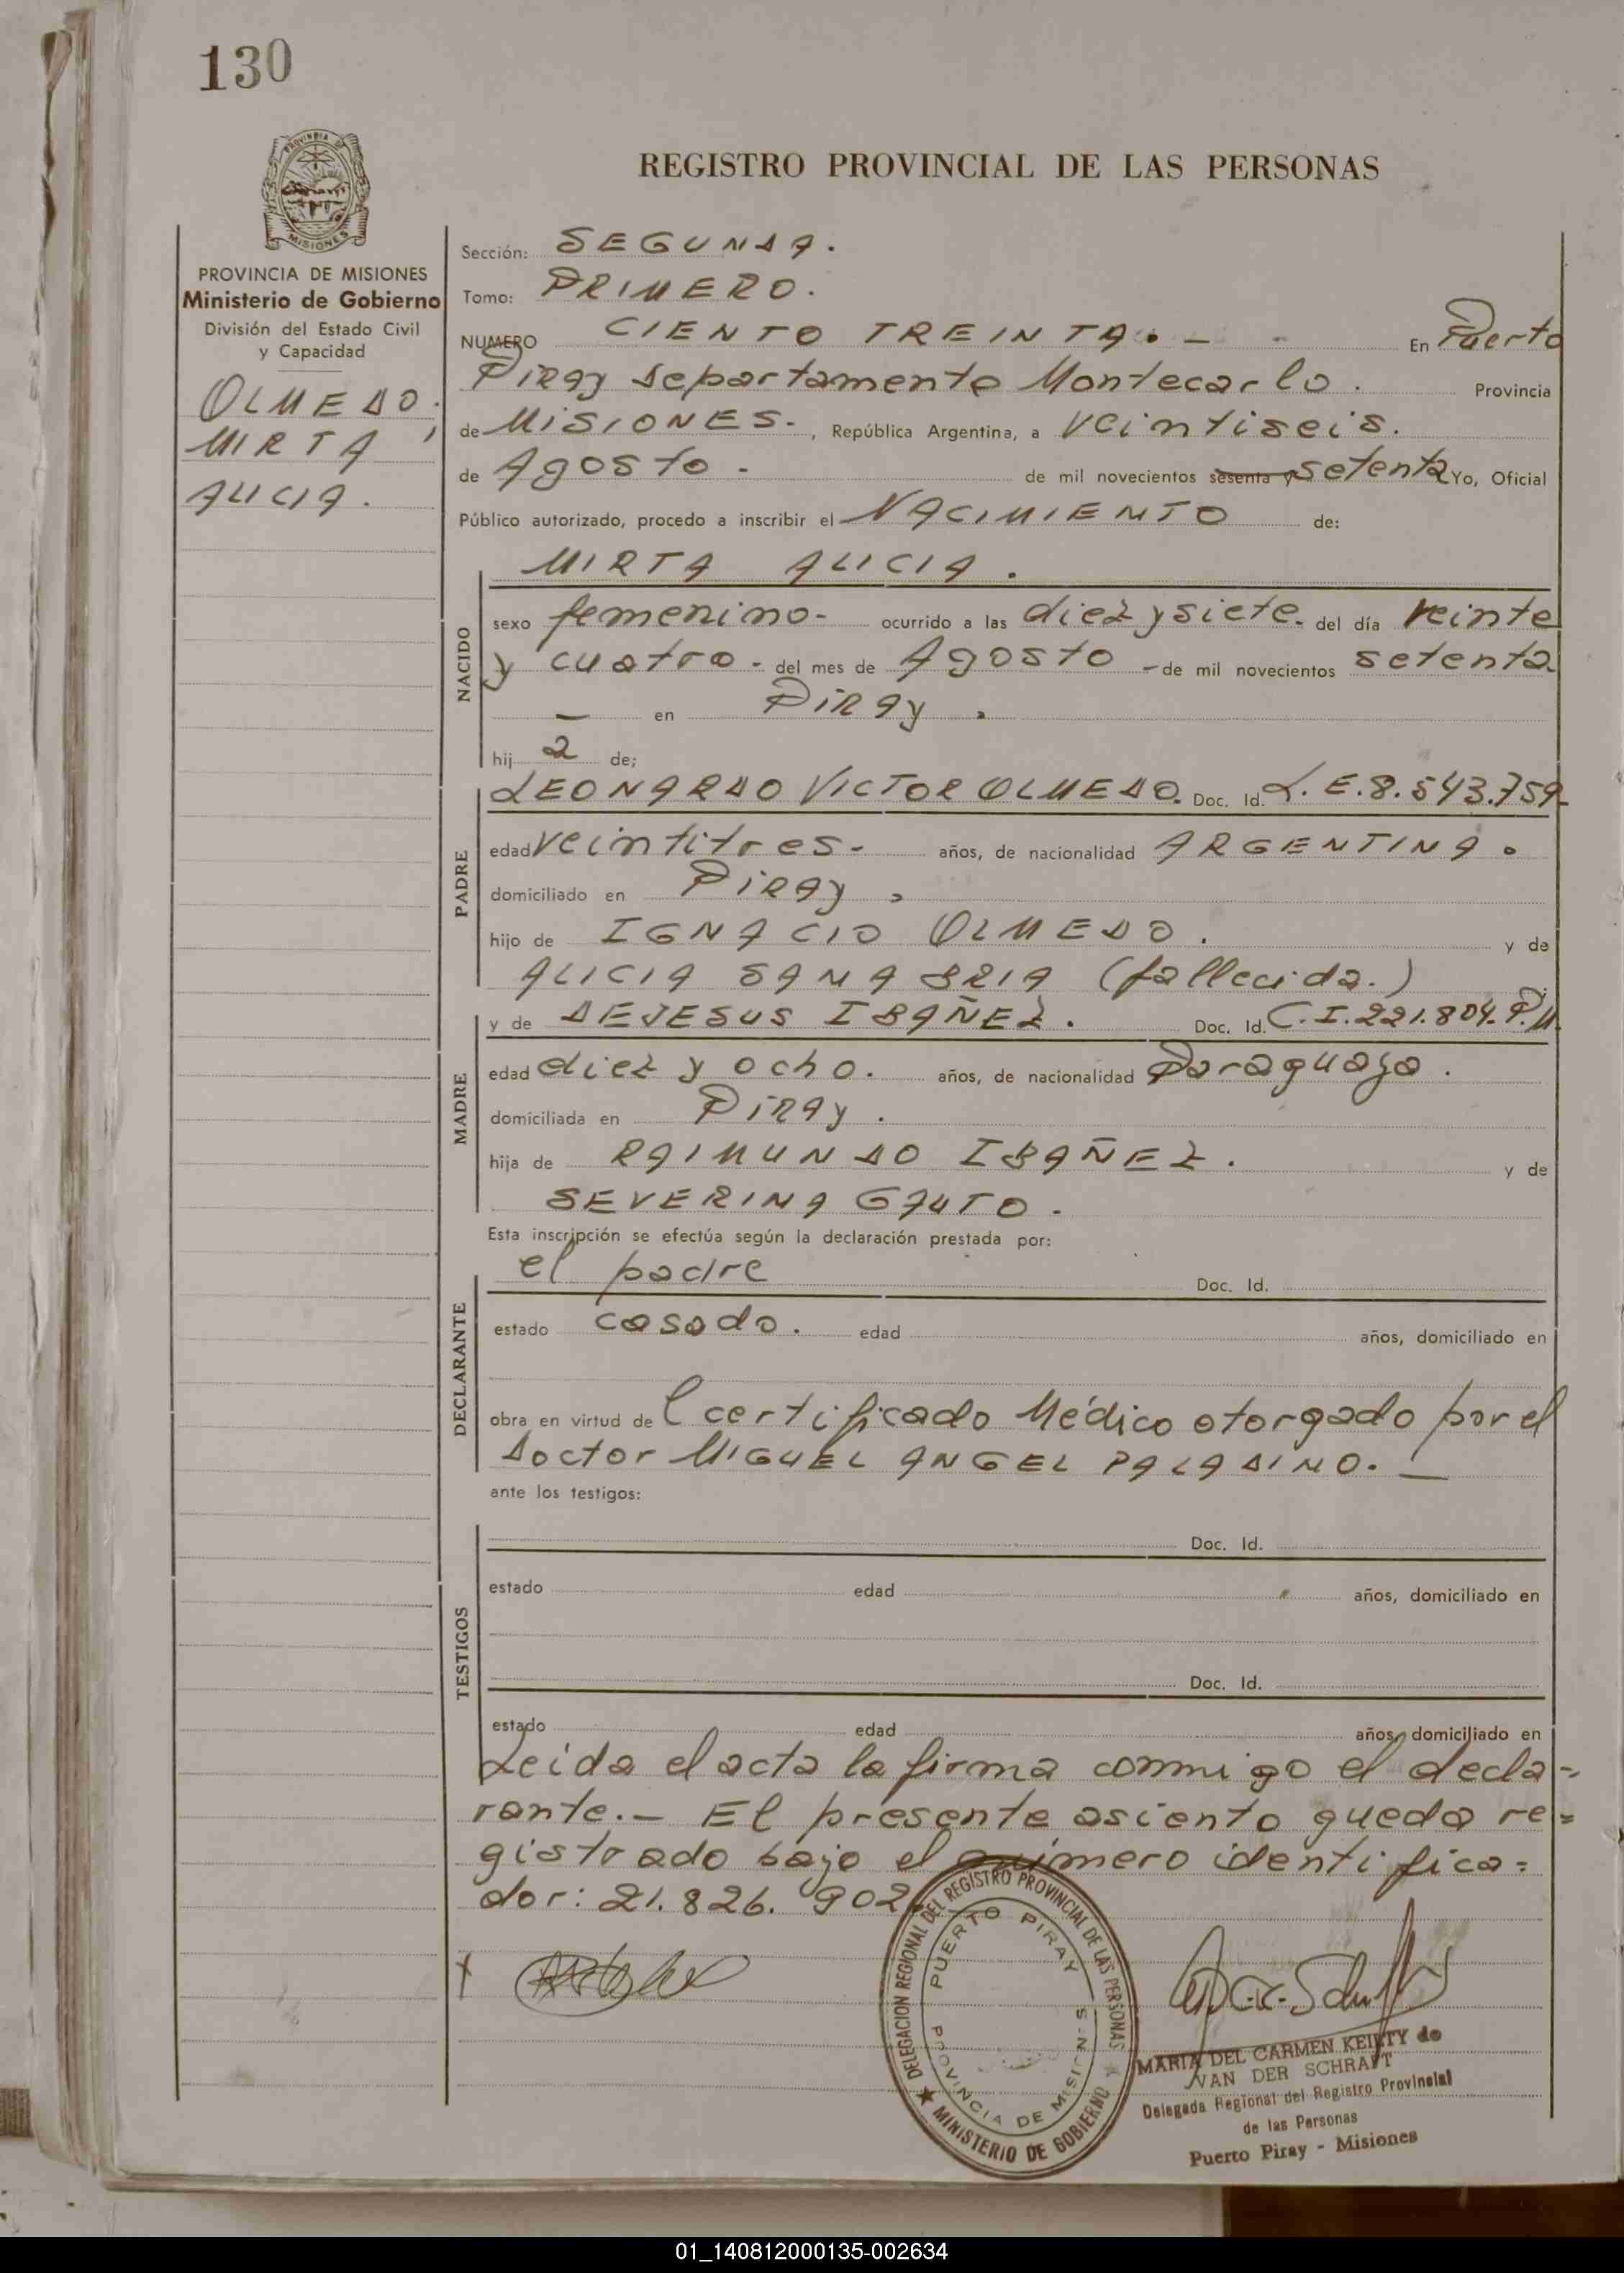 130
PROVINCIA DE
MISIONES
REGISTRO PROVINCIAL DE LAS PERSONAS
PROVINCIA DE MISIONES
Ministerio de Gobierno
División del Estado Civil
y Capacidad
OLMEDO.
MIRTA
ALICIA.
Sección: SEGUNDA.
Tomo: PRIMERO.
NUMERO CIENTO TREINTA. - En Puerto
Piray Departamento Montecarlo. Provincia
de MISIONES. , República Argentina, a veintiseis.
de Agosto. de mil novecientos sesenta y setenta Yo, Oficial
Público autorizado, procedo a inscribir el NACIMIENTO de:
MIRTA ALICIA.
NACIDO
sexo femenino- ocurrido a las diez y siete. del día veinte
y cuatro. del mes de Agosto - de mil novecientos setenta
— en Piray.
hij a de;
PADRE
LEONARDO VICTOR OLMEDO. Doc. Id. L.E.8.543.759-
edad veintitres- años, de nacionalidad ARGENTINA.
domiciliado en Piray,
hijo de IGNACIO OLMEDO. y de
ALICIA SANABRIA (fallecida.)
MADRE
y de DEJESUS IBAÑEZ. Doc. Id. C.I.221.804.P.M.
edad diez y ocho. años, de nacionalidad Paraguaya.
domiciliada en Piray.
hija de RAIMUNDO IBAÑEZ. y de
SEVERINA GAUTO.
Esta inscripción se efectúa según la declaración prestada por:
DECLARANTE
el padre Doc. Id.
estado casado. edad años, domiciliado en
obra en virtud de l certificado Médico otorgado por el
Doctor MIGUEL ANGEL PALADINO. —
ante los testigos:
TESTIGOS
Doc. Id.
estado edad años, domiciliado en
Doc. Id.
estado edad años, domiciliado en
Leida el acta la firma conmigo el decla-
rante.- El presente asiento queda re=
gistrado bajo el número identifica=
dor: 21.826.902.
DELEGACION REGIONAL DEL REGISTRO PROVINCIAL DE LAS PERSONAS
★ MINISTERIO DE GOBIERNO ★
PUERTO PIRAY
PROVINCIA DE MISIONES
MARIA DEL CARMEN KEILTY de
VAN DER SCHRAFT
Delegada Regional del Registro Provincial
de las Personas
Puerto Piray - Misiones
01_140812000135-002634